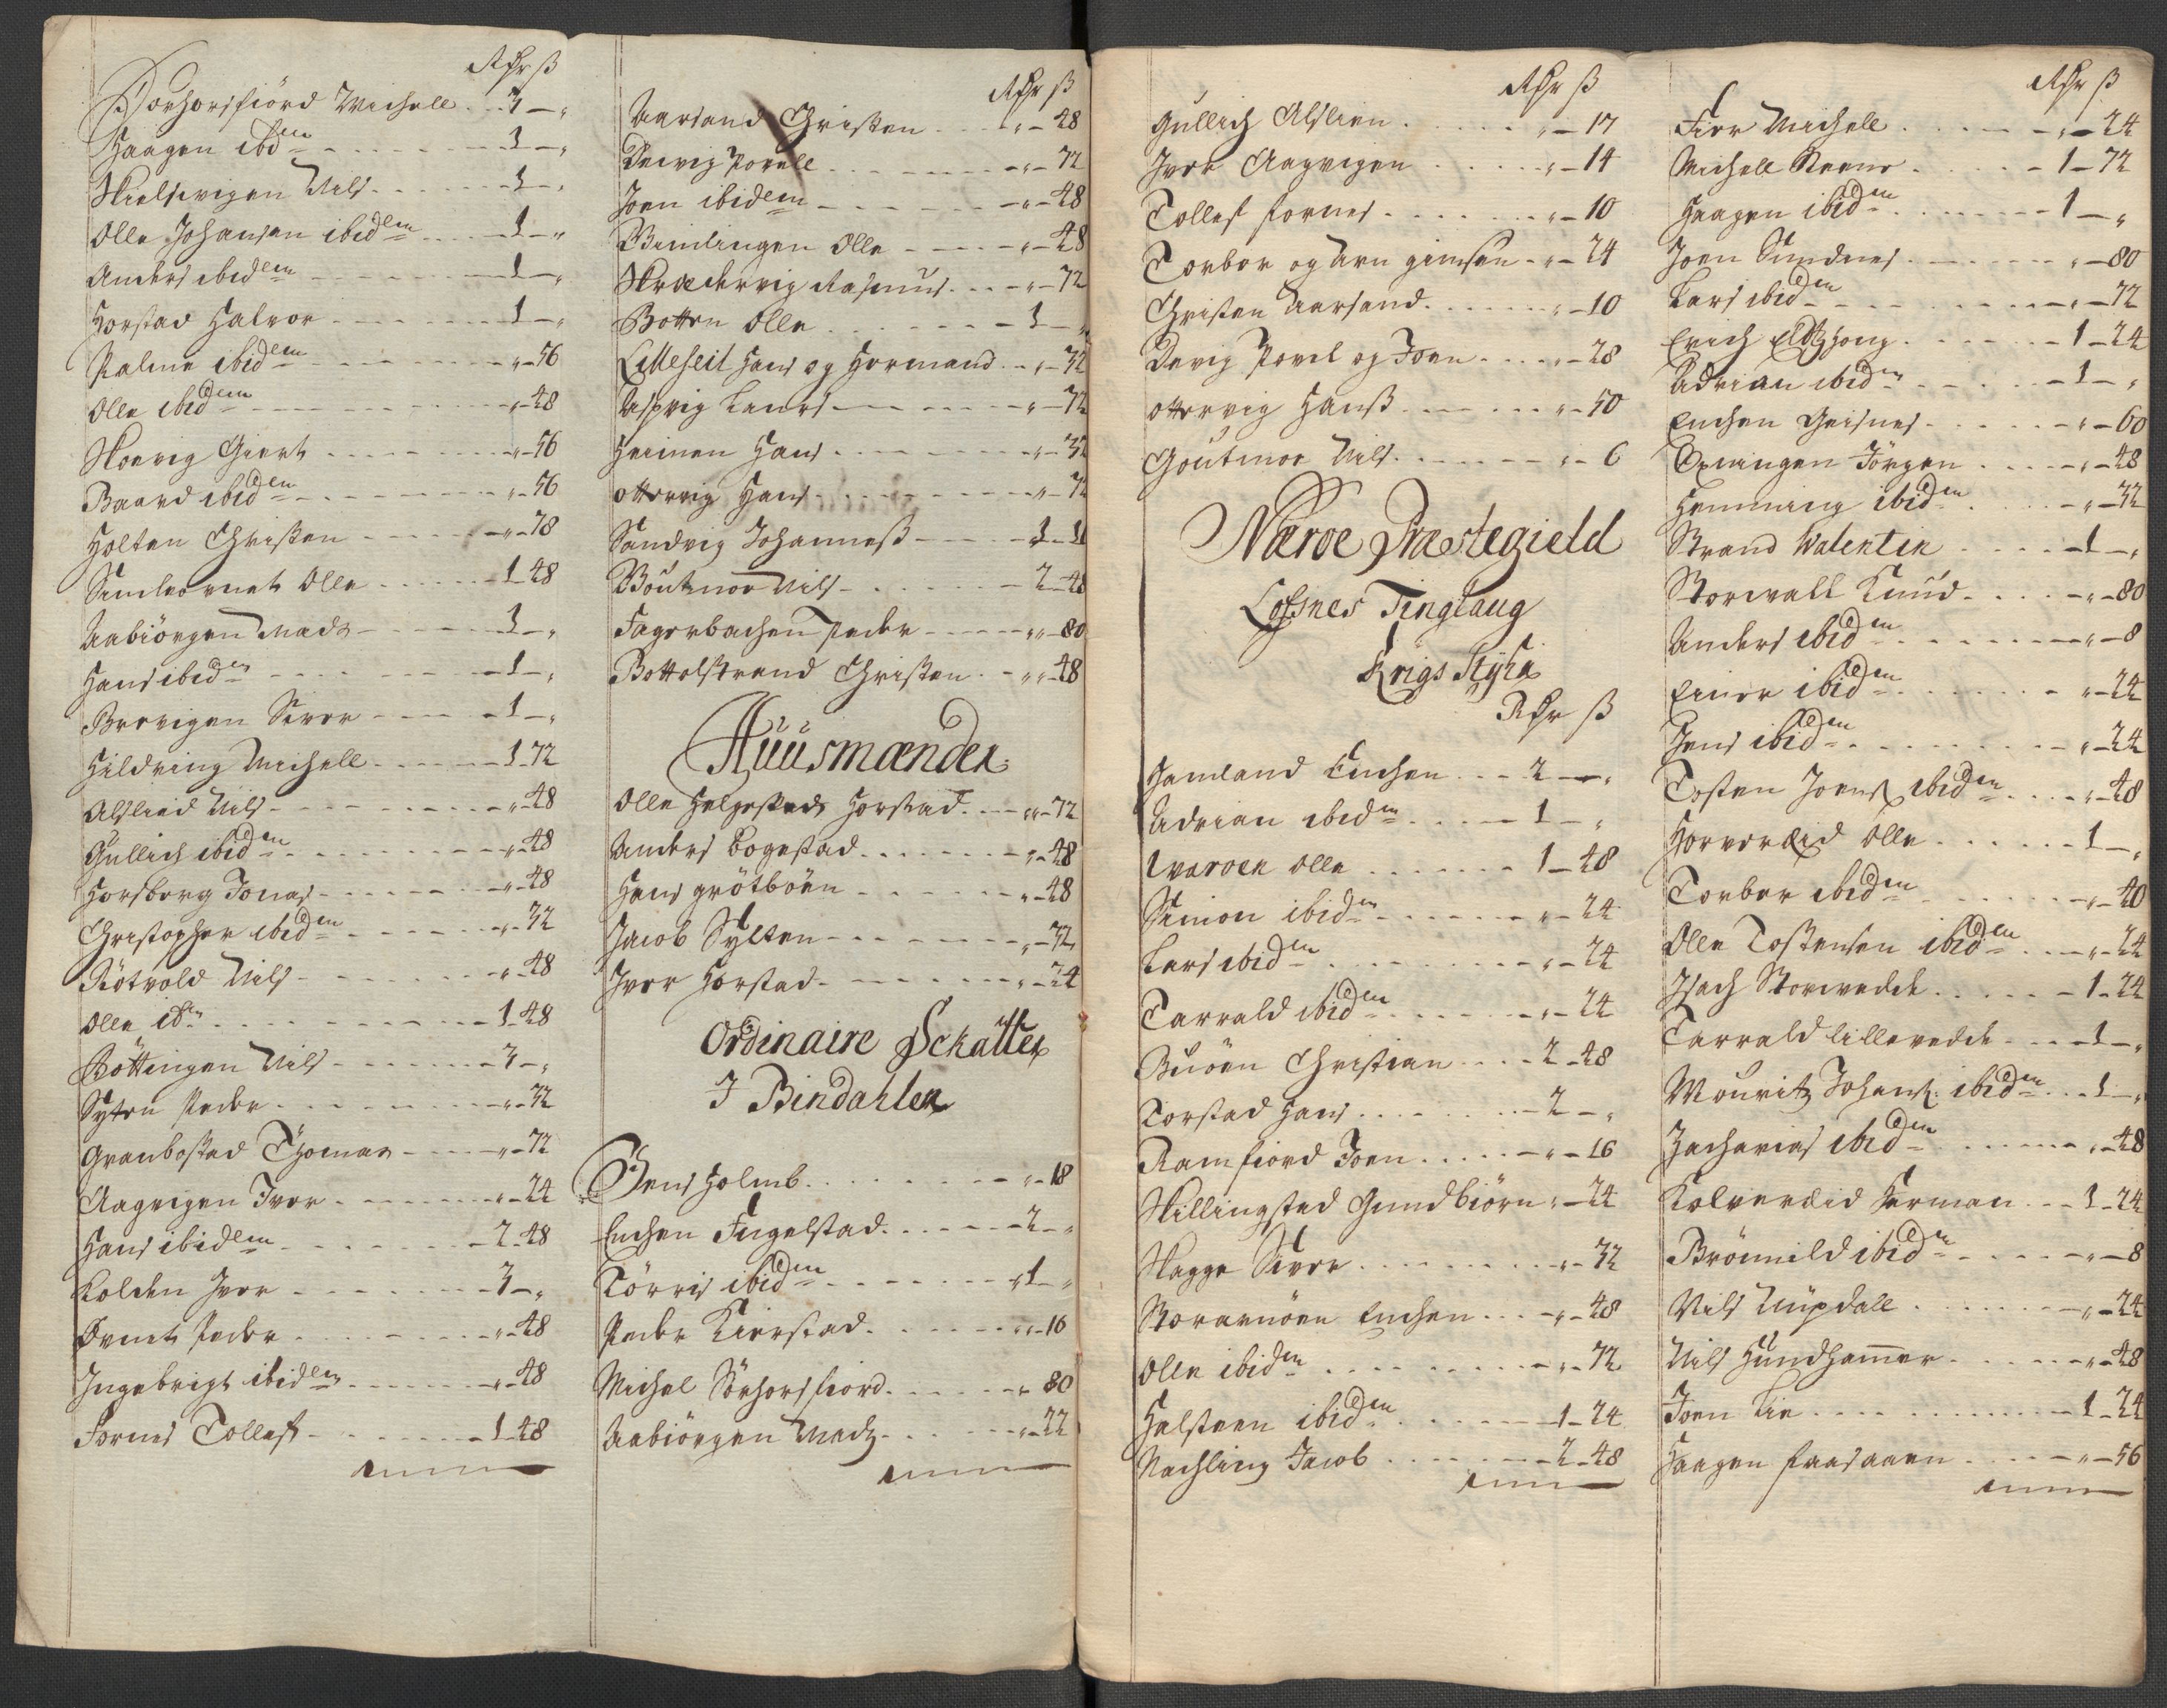 Rdr ß
Sørhorsfiörd Michell - 3 - „
Haagen ibdm - 3 - „
Skielsvigen Nils - 3 - „
Olle Johansen ibidem - 1 - „
Anders ibidem - 1 - „
Horstad Halvor - 1 - „
Palme ibidem - „ - 56
Olle ibidem - „ - 48
Skoevig Giert - „ - 56
Baard ibidem - „ - 56
Holten Christen - „ - 78
Olle - 1 - 48
Aabiörgen Mads - 3 - „
Hans ibidm - 1 - „
Sivor - 1 - „
Hildring Michell - 1 - 72
Alsliid Nils - „ - 48
Gullich ibidem - „ - 48
Horsborg Jonas - „ - 48
Christopher ibidem - „ - 32
Røtvold Nils - „ - 48
Olle idm - 1 - 48
Bøttingen Nils - 3 - „
Peder - „ - 32
Granbostad Thomas - „ - 72
Aagvigen Iver - „ - 24
Hans ibidem - 2 - 48
Kolden Iver - 3 - „
Peder - „ - 48
Ingebrigt ibidem - „ - 48
Fornes Tollef - 1 - 48
Rdr ß
Aarsand Christen - „ - 48
Devig Povell - „ - 72
Joen ibidem - „ - 48
Bindingen Olle - „ - 48
Skrædervig Rasmus - „ - 72
Botten Olle - 3 - „
Lilleheil Hans og Hormand - „ - 32
Aspvig Laurs - „ - 72
Heimen Hans - „ - 32
Ottervig Hans - „ - 72
Sandvig Johanneß - 3 -
Goutmoe Nils - 2 - 48
Fagerbachen Peder - „ - 80
Bottolstrand Christen - „ - 48
Huusmænder
Olle Helgestads Horstad - „ - 72
Anders Bogestad - „ - 48
Hans grötböen - „ - 48
Jacob Sylten - „ - 32
Iver Horstad - „ - 24
Ordinaire Schatter
I Bindahlen
Jens Holmb - „ - 18
Enchen Fugelstad - 2 - „
Törris ibidem - 1 - „
Peder Kierstad - „ - 16
Michel Sörhorsfiord - „ 80
Aabiörgen Madz - „ - 22
Rdr ß
Gullich Alslien - „ - 17
Iver Aagvigen - „ - 14
Tollef Fornes - „ - 10
Torber og Arn gimsen - „ - 24
Christen Aarsand - „ - 10
Devig Povel og Joen - „ - 28
Ottervig Hanß - „ - 50
Goutmoe Nils - „ - 6
Næroe Præstegield
Lofsnes Tinglaug
Krigs Styhr
Rdr ß
Hamland Enchen - 2 - „
Adrian ibidm - 1 - „
Waroen Olle - 1 - 48
Simon ibidm - „ - 24
Lars ibidm - „ - 24
Tarrald ibidem - „ - 24
Buöen Christian - 2 - 48
Torstad Hans - 2 - „
Ramfiord Joen - „ - 16
Skillingstad Gundbiörn „ - 24
Skagge Sivor - „ - 32
Storavnöen Enchen - „ - 48
Olle ibidm - „ - 72
Halsteen ibidem - 1 - 24
Nachling Jacob - 2 - 48
Rdr ß
Fier Michell - „ - 24
Michell Steene - 1 - 72
Haagen ibidm - 1 - „
Joen Sundnes - „ - 80
Lars ibidm - „ - 72
Erich - 1 - 24
Adrian ibidm - 1 - „
Enchen Geisnes - „ - 60
Opningen Jörgen - „ - 48
Hemming ibidm - „ - 32
Strand Walentin - 1 - „
Storwall Knud - „ - 80
Anders ibidem - „ - 8
Einer ibidem - „ - 24
Jens ibidem - „ - 24
Tosten Joens. ibidem - „ - 48
Horvereid Olle - 1 - „
Torber ibidem - „ - 40
Olle Tostensen ibidem - „ - 24
Isach Storvedde - 1 - 24
Tarrald lillevedde - 1 - „
Mouritz Johans. ibidem - 1 - „
Zacharias ibidem - „ - 48
Kolvereid Herman - 1 - 24
Brönnild ibidem - „ - 8
Nils Küpdall - „ - 24
Nils Hundhammer - „ - 48
Joen Lie - 1 - 24
Haagen Faasaaen - „ - 56